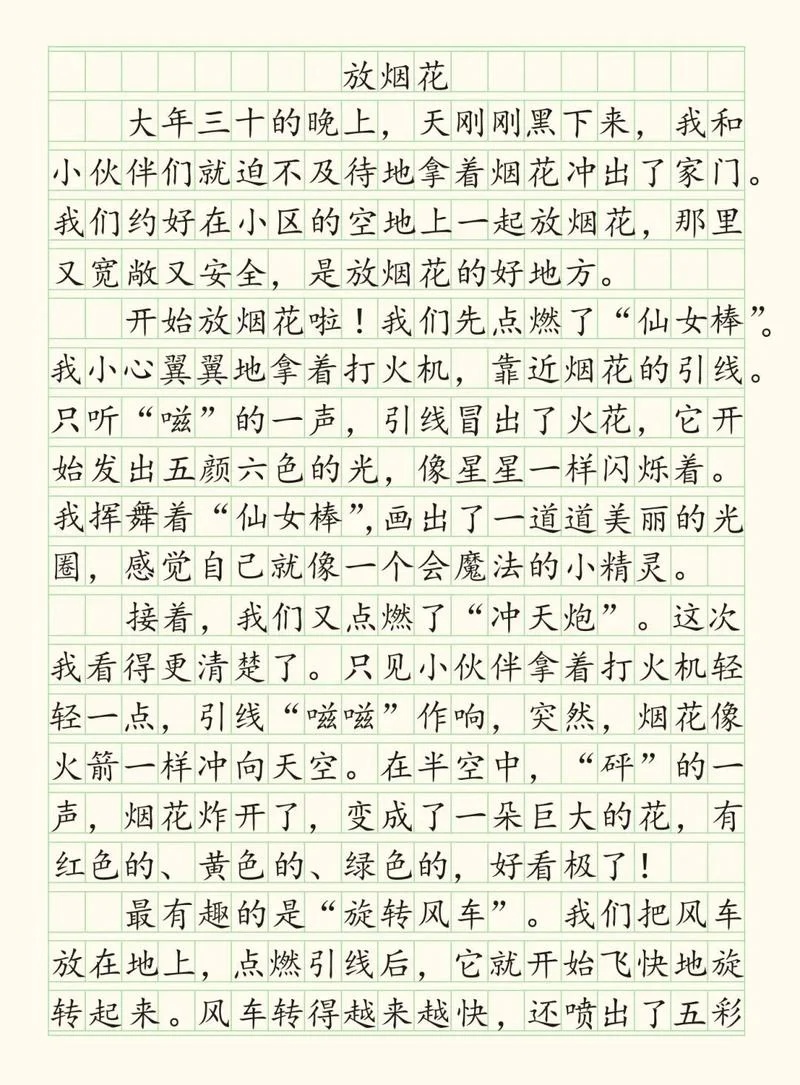 放烟花
大年三十的晚上，天刚刚黑下来，我和
小伙伴们就迫不及待地拿着烟花冲出了家门。
我们约好在小区的空地上一起放烟花，那里
又宽敞又安全，是放烟花的好地方。
开始放烟花啦！我们先点燃了“仙女棒”。
我小心翼翼地拿着打火机，靠近烟花的引线。
只听“嗞”的一声，引线冒出了火花，它开
始发出五颜六色的光，像星星一样闪烁着。
我挥舞着“仙女棒”，画出了一道道美丽的光
圈，感觉自己就像一个会魔法的小精灵。
接着，我们又点燃了“冲天炮”。这次
我看得更清楚了。只见小伙伴拿着打火机轻
轻一点，引线“嗞嗞”作响，突然，烟花像
火箭一样冲向天空。在半空中，“砰”的一
声，烟花炸开了，变成了一朵巨大的花，有
红色的、黄色的、绿色的，好看极了！
最有趣的是“旋转风车”。我们把风车
放在地上，点燃引线后，它就开始飞快地旋
转起来。风车转得越来越快，还喷出了五彩